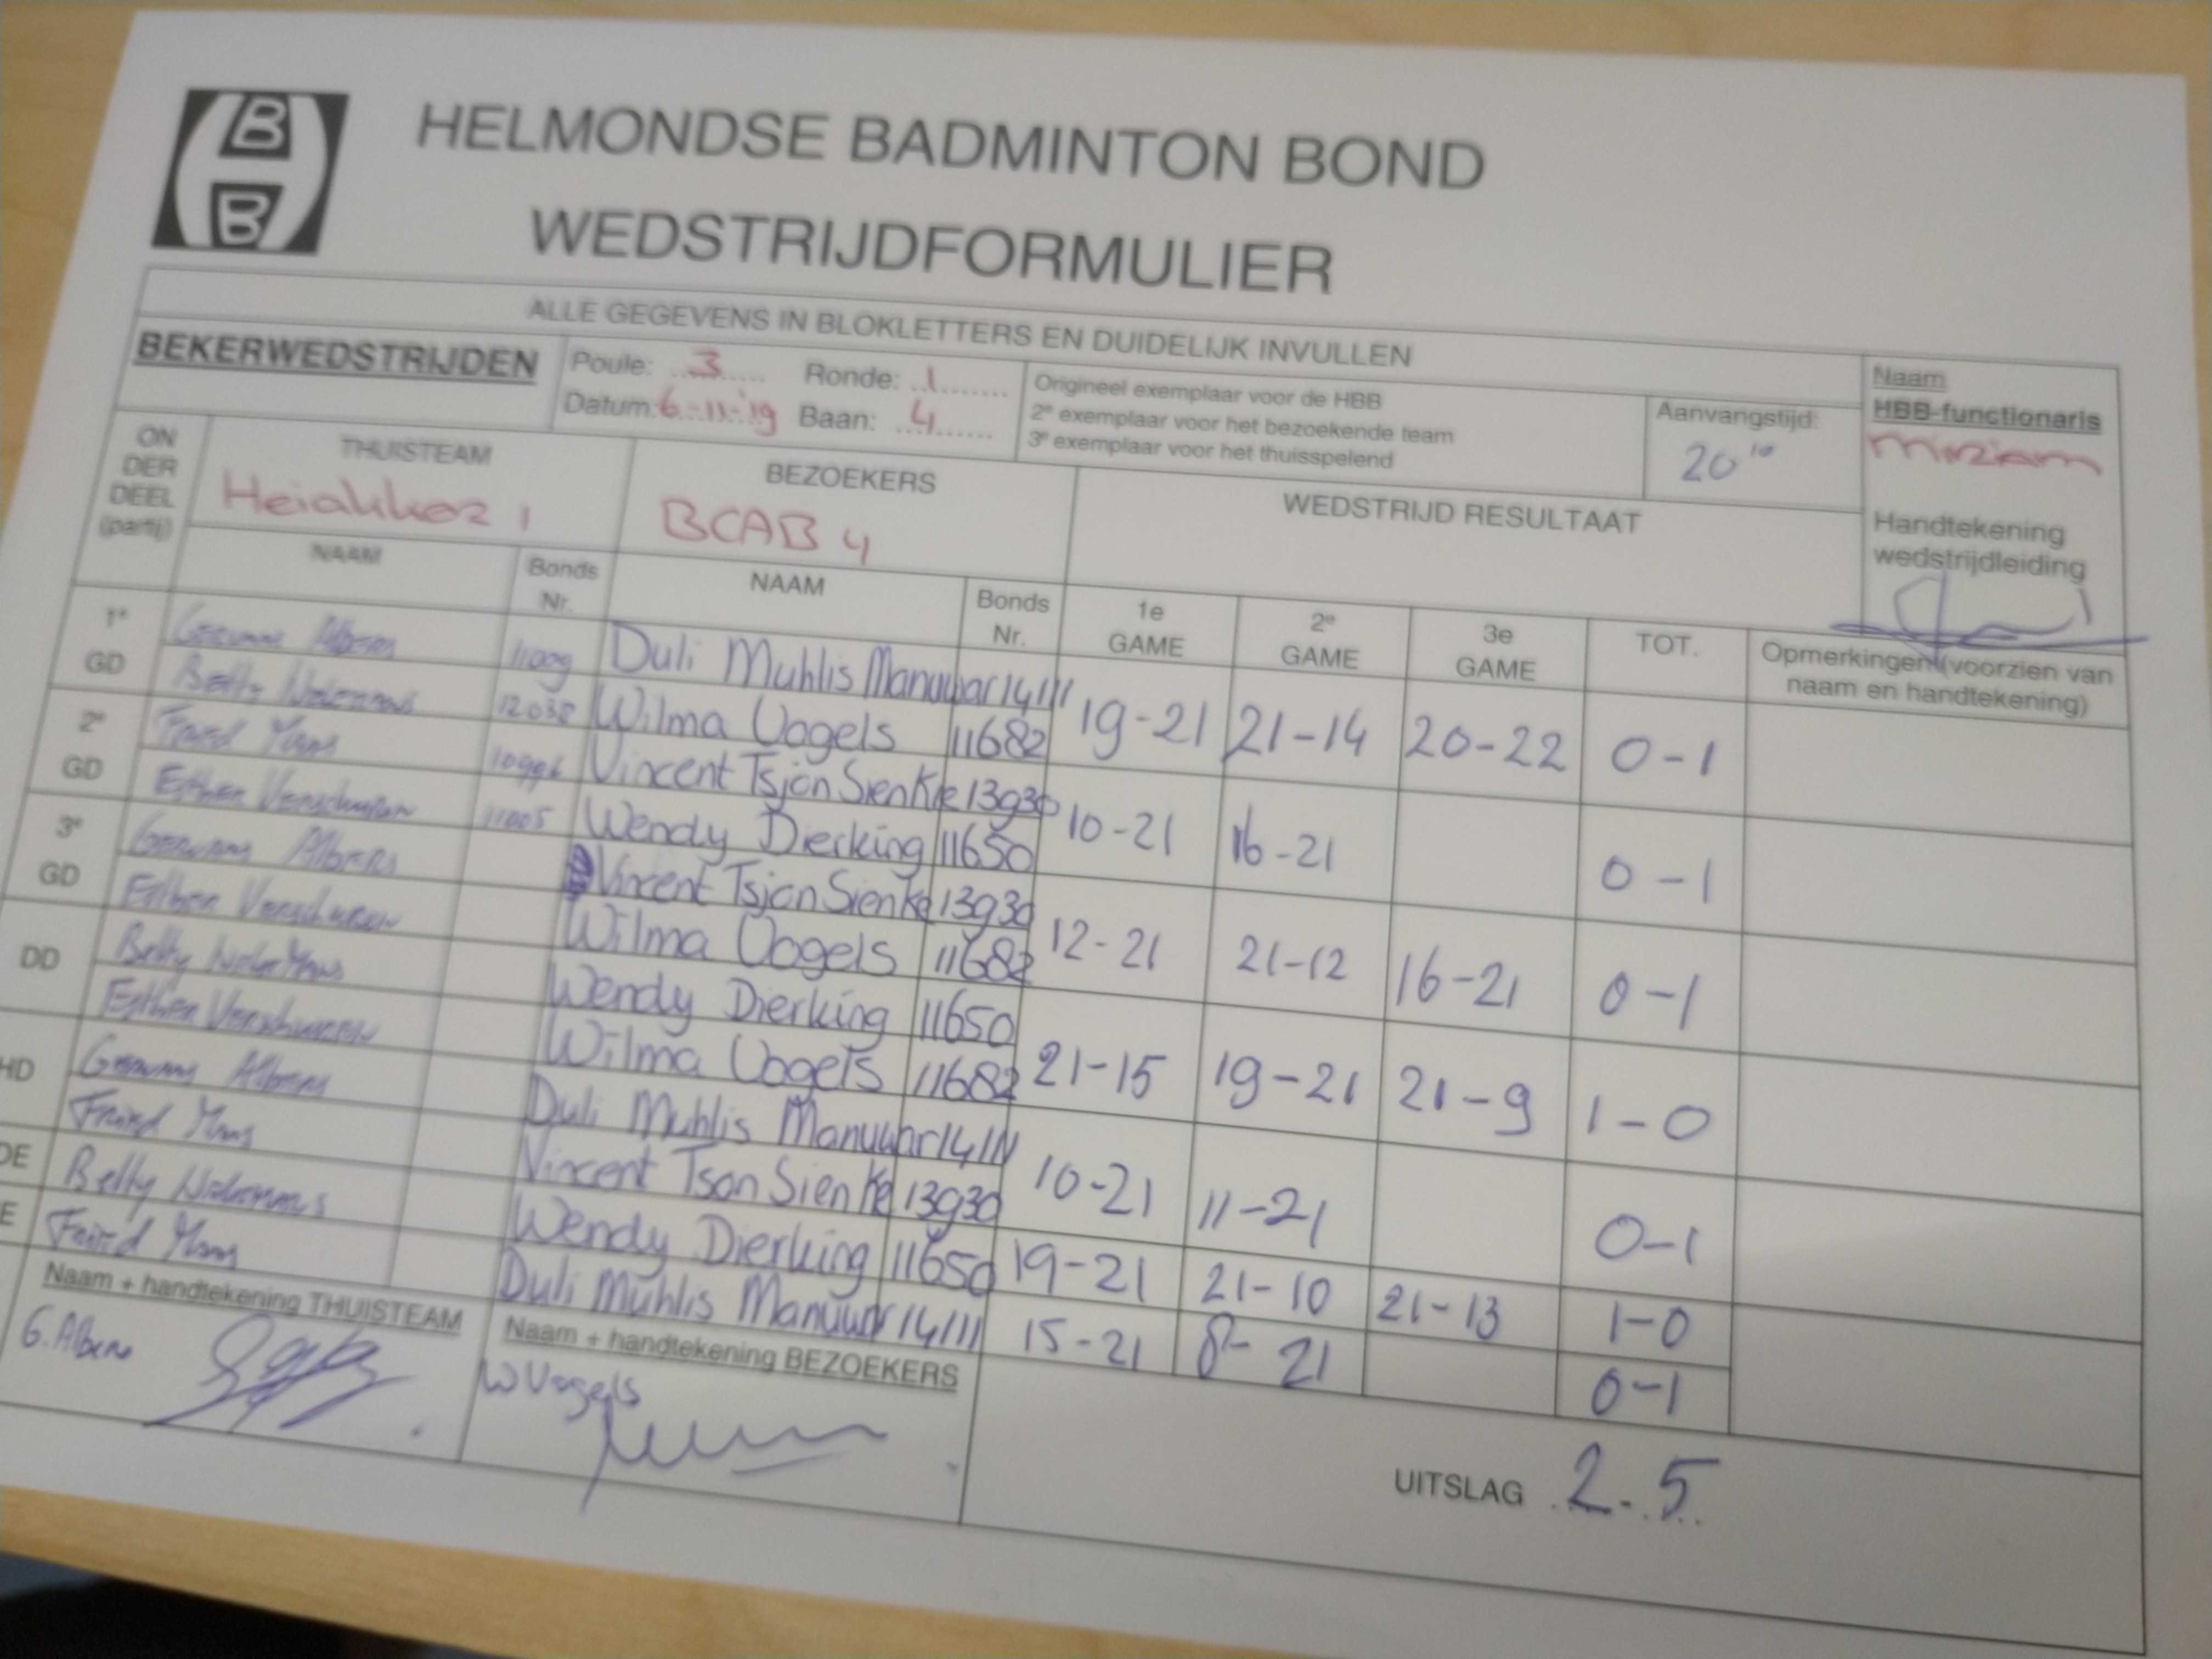 B
B
HELMONDSE BADMINTON BOND
WEDSTRIJDFORMULIER
ALLE GEGEVENS IN BLOKLETTERS EN DUIDELIJK INVULLEN
BEKERWEDSTRIJDEN
Poule: 3 Ronde: 1
Datum: 6-11-'19 Baan: 4
Origineel exemplaar voor de HBB
2e exemplaar voor het bezoekende team
3e exemplaar voor het thuisspelend
Aanvangstijd:
20 10
Naam
HBB-functionaris
Handtekening
wedstrijdleiding
ON
DER
DEEL
(partij)
THUISTEAM
Heiakker 1
BEZOEKERS
BCAB 4
WEDSTRIJD RESULTAAT
NAAM Bonds Nr. NAAM Bonds Nr. 1e GAME 2e GAME 3e GAME TOT. Opmerkingen (voorzien van
naam en handtekening)
1e Albers 11009 Duli Muhlis Manuwar 14111
GD Betty 12038 Wilma Vogels 11682 19-21 21-14 20-22 0-1
2e 10996 Vincent Tsjon Sienkie 13930
GD Esther Verschuren 11005 Wendy Dierking 11650 10-21 16-21 0-1
3e Albers Vincent Tsjon Sienke 13930
GD Esther Verschuren Wilma Vogels 11682 12-21 21-12 16-21 0-1
DD Betty Wendy Dierking 11650
Esther Verschuren Wilma Vogels 11682 21-15 19-21 21-9 1-0
HD Albers Duli Muhlis Manuwar 14111
Vincent Tson Sienke 13930 10-21 11-21 0-1
DE Betty Wendy Dierking 11650 19-21 21-10 21-13 1-0
E Duli Muhlis Manuwar 14111 15-21 8-21 0-1
Naam + handtekening THUISTEAM
G. Albers
Naam + handtekening BEZOEKERS
W Vogels
UITSLAG 2-5